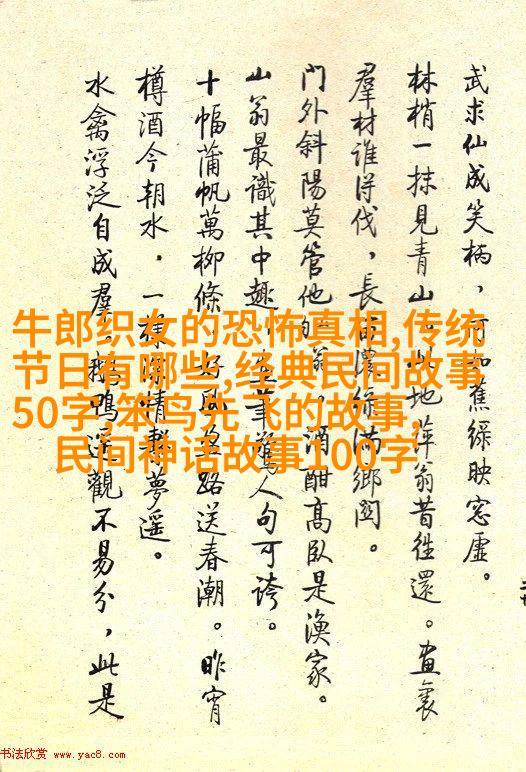 牛郎织女的恐怖真相,传统
节日有哪些,经典民间故事
50字,笨鸟先飞的故事,
民间神话故事100字
武求仙成笑柄，如蕉綠映窓虛。
林梢一抹見青山州地萍翁昔往還。畫裏
羣材谁得伐，長綠滿鄉閭。
門外斜陽莫管他翁酒酣高臥是漁家。
山翁最識其中趣筆驚人句可誇。
十幅蒲帆萬柳條，好風路送春潮。昨宵
樽酒今朝水，一樣情夢遥。
水禽浮泛自成羣鴨遠觀不易分，此是
书法欣赏 www.yac8.com